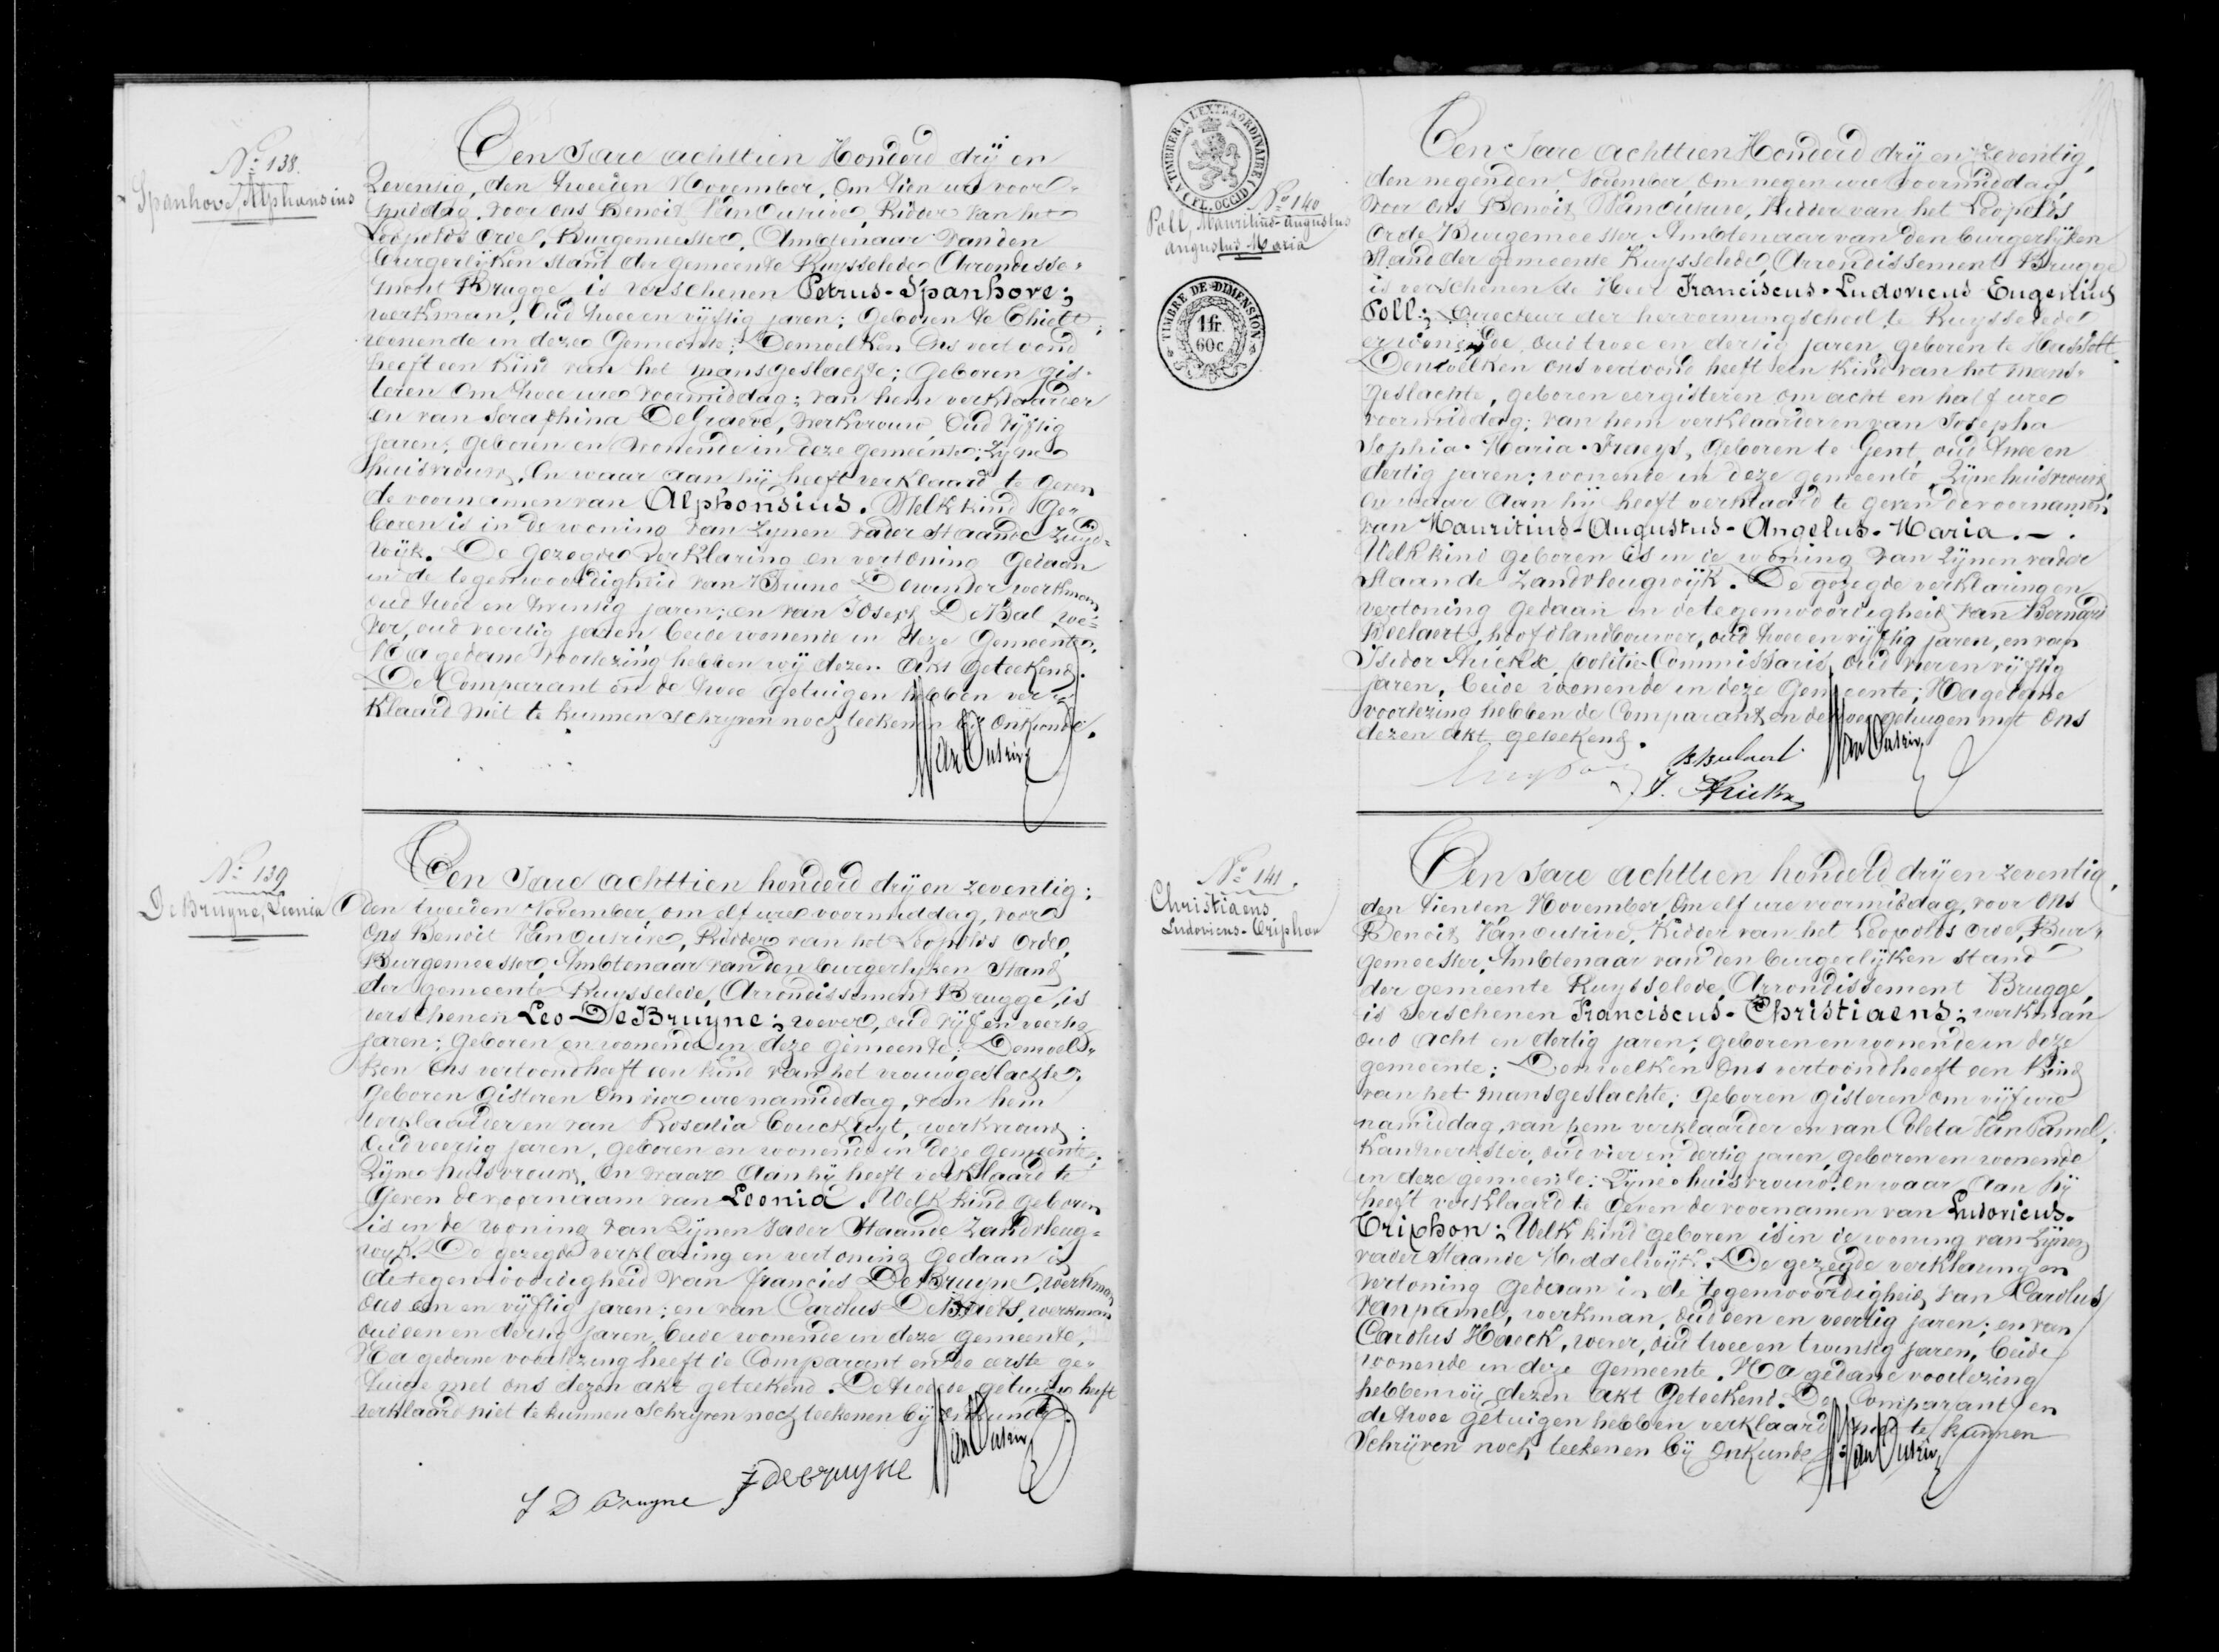 N° 138.
Spanhove, Alphonsius
Ten Jare achttien Honderd drij en
Zeventig, den tweeden November, om tien ure voor-
middag, voor ons Benoit Van Outrive, Ridder van het
Leopolds Orde, Burgemeester, Ambtenaar van den
burgerlijken stand der gemeente Ruysselede Arrondisse-
ment Brugge is verschenen Petrus-Spanhove;
werkman, Oud twee en vijftig jaren; Geboren te Thielt,
wonende in deze Gemeente; Demwelken Ons vertoond
heeft een Kind van het mansgeslachte; Geboren gis-
teren Om twee ure voormiddag; van hem verklaarder
en van Seraphina DeGraeve, werkvrouw, Oud vijftig
jaren; geboren en woonende in deze gemeente; Zijne
huisvrouw, En waar aan hij heeft verklaard te geven
de voornamen van Alphonsius. Welk kind ge-
boren is in de woning van zijnen vader staande Zuyd-
wijk. De gezegde verklaring en vertoning Gedaan
in de tegenwoordigheid van Bruno Dewinter werkman,
oud twee en twintig jaren; en van Joseph DeBal, we-
ver, oud veertig jaren beide wonende in deze Gemeente.
Na gedane voorlezing hebben wij dezen akt geteekend.
De Comparant en de twee getuigen hebben ver-
klaard niet te kunnen schryven noch teekenen bij onkunde.
Van Outrive
N° 139
DeBruyne, Leonia
Ten Jare achttien honderd drij en zeventig;
den tweeden November, om elf ure voormiddag, voor
Ons Benoit Van Outrive, Ridder van het Leopolds Orde,
Burgemeester, Ambtenaar van den burgerlyken Stand
der gemeente Ruysselede, Arrondissement Brugge, is
verschenen Leo DeBruyne; wever, oud vijf en veertig
jaren; Geboren en wonende in deze gemeente; Demwel-
ken Ons vertoond heeft een kind van het vrouwgeslachte,
Geboren gisteren Om vier ure namiddag, van hem
verklaarder en van Rosalia Couckuyt, werkvrouw;
Oud veertig jaren, geboren en wonende in deze gemeente;
Zijne huisvrouw, En waar aan hij heeft verklaard te
Geven de voornaam van Leonia. Welk kind geboren
is in de woning van Zijnen Vader Staande Zandvleug-
wyk. De gezegde verklaring en vertoning Gedaan in
de tegenwoordigheid van francies De Bruyne, werkman
Oud een en vijftig jaren; en van Carolus DeBriets, werkman
oud een en dertig jaren, beide wonende in deze gemeente,
Na gedane voorlezing heeft de Comparant en de eerste ge-
tuige met ons dezen akt geteekend. De tweede getuige heeft
verklaard niet te kunnen Schryven noch teekenen bij onkunde.
Van Outrive
F DeBruyne
L D Bruyne
A TIMBRER A L'EXTRAORDINAIRE (FL. OCCID.)
N° 140
Poll, Mauritius-Augustus
Angustus Maria
TIMBRE DE DIMENSION
1 fr.
60 c.
Ten Jare achttien Honderd drij en Zeventig,
den negenden November, Om negen ure voormiddag,
voor ons Benoit Van Outrive, Ridder van het Leopolds
Orde Burgemeester Ambtenaar van den burgerlijken
Stand der gemeente Ruysselede, Arrondissement Brugge
is verschenen de Heer Franciscus-Ludovicus Eugenius
Poll; Directeur der hervormingschool te Ruysselede
er wonende, oud twee en dertig jaren, geboren te Hasselt,
Demwelken Ons vertoond heeft een Kind van het mans-
geslachte, geboren eergisteren om acht en half ure
voormiddag; van hem verklaarder en van Josepha
Sophia-Maria-Fraeys, Geboren te Gent, oud twee en
dertig jaren; wonende in deze gemeente, Zijne huisvrouw;
En waar Aan hij heeft verklaard te geven de voornamen
van Mauritius-Augustus-Angelus-Maria.-.
Welk kind geboren is in de woning van Zijnen vader
Staande Zandvleugwijk. De gezegde verklaring en
vertoning gedaan in de tegenwoordigheid van Bernard
Beelaert, hoofdlandbouwer, oud twee en vijftig jaren, en van
Isidor Stricke, politie-Commissaris, oud vier en vijftig
jaren, beide wonende in deze Gemeente; Na gedane
voorlezing hebben de Comparant en de twee getuigen met Ons
dezen akt geteekend.
B Beelaert
Van Outrive
N° 141.
Christiaens
Ludovicus-Triphon
Ten Jare achttien honderd drij en zeventig,
den tienden November, Om elf ure voormiddag, voor Ons
Benoit Van Outrive, Ridder van het Leopolds Orde, Bur-
gemeester, Ambtenaar van den burgerlijken stand
der gemeente Ruysselede, Arrondissement Brugge,
is verschenen Franciscus-Christiaens; werkman
oud acht en dertig jaren; geboren en wonende in deze
gemeente; Demwelken Ons vertoond heeft een Kind
van het mansgeslachte; Geboren gisteren om vijf ure
namiddag, van hem verklaarder en van Coleta Van Pamel,
Kantwerkster, oud vier en dertig jaren, geboren en wonende
in deze gemeente; Zijne huisvrouw. En waar Aan hij
heeft verklaard te Geven de voornamen van Ludovicus-
Triphon; Welk kind geboren is in de woning van Zijnen
vader Staande Middelwijk. De gezegde verklaring en
vertoning gedaan in de tegenwoordigheid van Carolus
Van pamel, werkman, Oud een en veertig jaren; en van
Carolus Haeck, wever, Oud twee en twintig jaren, beide
wonende in deze Gemeente. Na gedane voorlezing
hebben wij dezen akt Geteekend. De Comparant en
de twee Getuigen hebben verklaard niet te kunnen
Schrijven noch teekenen bij Onkunde
Van Outrive